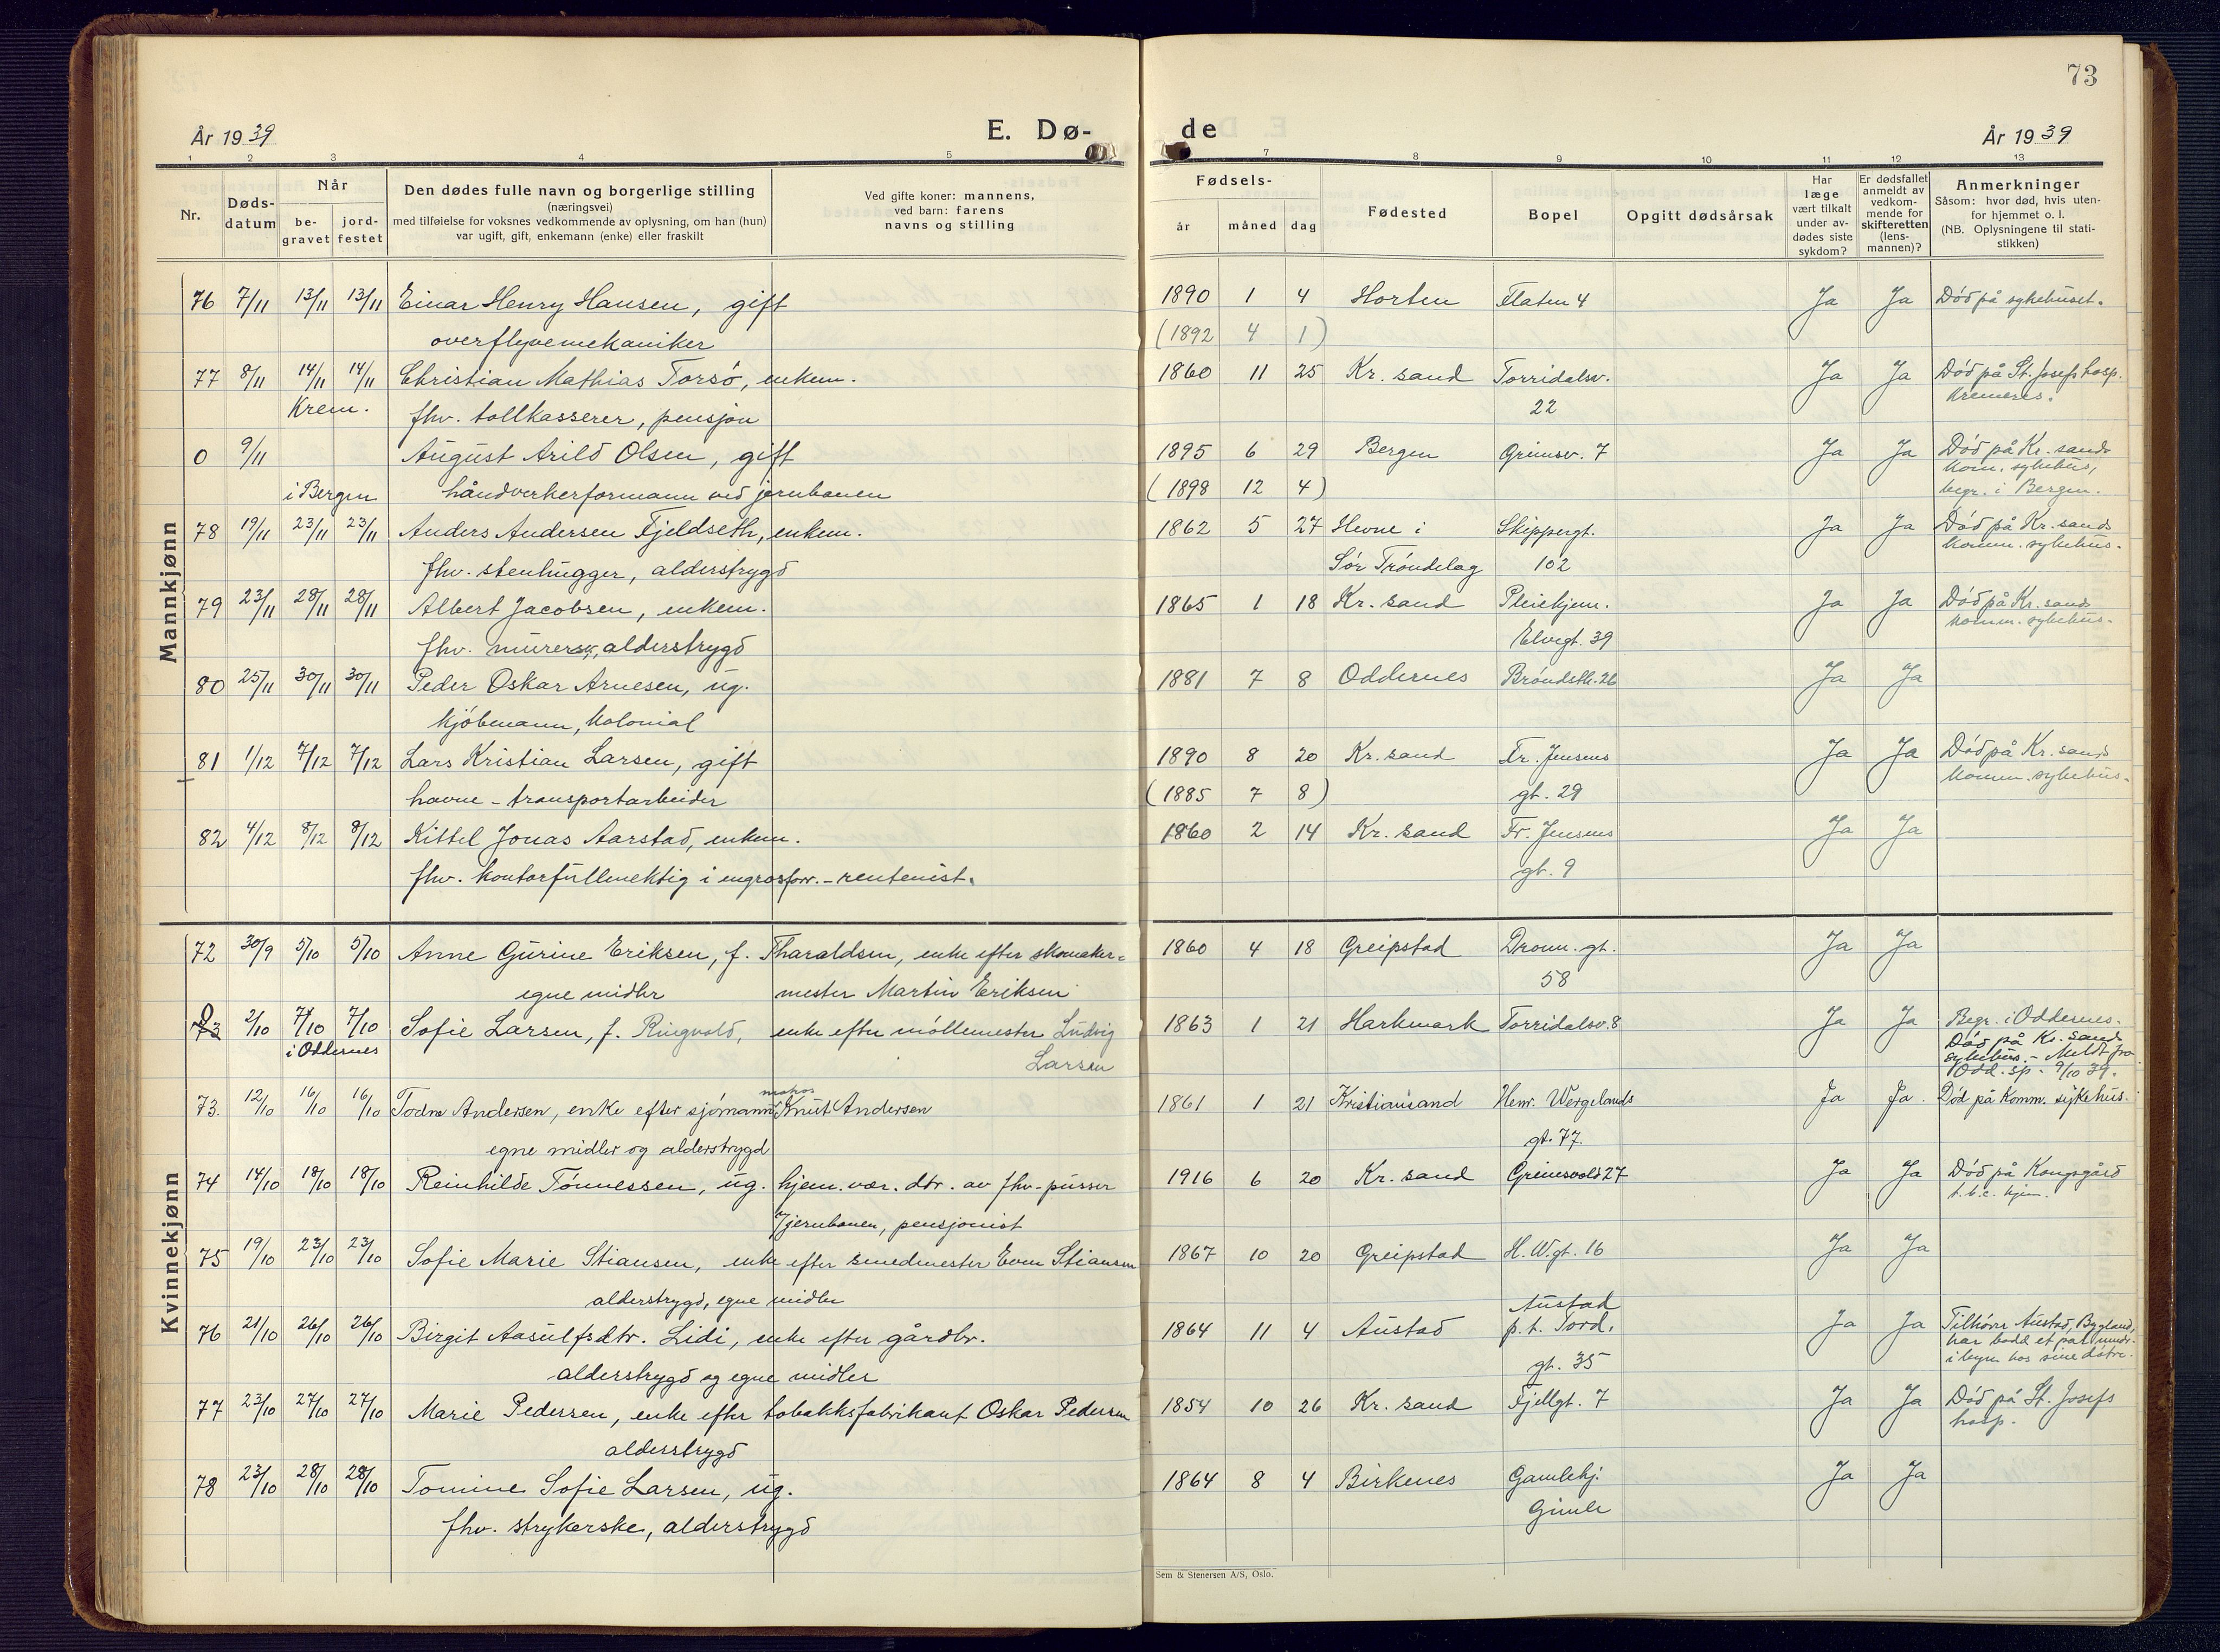 73
År 1939
E. Dø-
de
År 1939
1 2 3 4 5
7 8 9 10 11 12 13
Nr.
Døds-
datum
Når
be-
gravet
jord-
festet
Den dødes fulle navn og borgerlige stilling
(næringsvei)
med tilføielse for voksnes vedkommende av oplysning, om han (hun)
var ugift, gift, enkemann (enke) eller fraskilt
Ved gifte koner: mannens,
ved barn: farens
navns og stilling
Fødsels-
år måned dag
Fødested
Bopel
Opgitt dødsårsak
Har
læge
vært tilkalt
under av-
dødes siste
sykdom?
Er dødsfallet
anmeldt av
vedkom-
mende for
skifteretten
(lens-
mannen)?
Anmerkninger
Såsom: hvor død, hvis uten-
for hjemmet o. l.
(NB. Oplysningene til stati-
stikken)
Mannkjønn
76 7/11 13/11 13/11 Einar Henry Hansen, gift 1890 1 4 Horten Flaten 4 Ja Ja Död på sykehuset.
overflyvemekaniker (1892 4 1)
77 8/11 14/11 14/11 Christian Mathias Torsö, enkem. 1860 11 25 Kr. sand Torridalsv. Ja Ja Död på St. Josefs hosp.
Krem. fhv. tollkasserer, pensjon 22 Kremeres.
0 9/11 August Arild Olsen, gift 1895 6 29 Bergen Grimsv. 7 Ja Ja Död på Kr. sands
kom. sykehus,
i Bergen håndverkerformann ved jernbanen (1898 12 4) begr. i Bergen.
78 19/11 23/11 23/11 Anders Andersen Fjeldseth, enkem. 1862 5 27 Hevne i Skippergt. Ja Ja Död på Kr. sands
komm. sykehus.
fhv. stenhugger, alderstrygd Sör Tröndelag 102
79 23/11 28/11 28/11 Albert Jacobsen, enkem. 1865 1 18 Kr. sand Pleiehjem. Ja Ja Död på Kr. sands
komm. sykehus.
fhv. murer, alderstrygd Elvegt. 39
80 25/11 30/11 30/11 Peder Oskar Arnesen, ug. 1881 7 8 Oddernes Bröndstk. 26 Ja Ja
kjöbmann, kolonial
81 1/12 7/12 7/12 Lars Kristian Larsen, gift 1890 8 20 Kr. sand Fr. Jensens Ja Ja Död på Kr. sands
komm. sykehus.
havne - transportarbeider (1885 7 8) gt. 29
82 4/12 8/12 8/12 Kittel Jonas Aarstad, enkem. 1860 2 14 Kr. sand Fr. Jensens Ja Ja
fhv. kontorfullmektig i engrosforr. - rentenist. gt. 9
Kvinnekjønn
72 30/9 5/10 5/10 Anne Gurine Eriksen, f. Tharaldsen, enke efter skomaker- 1860 4 18 Greipstad Dronn. gt. Ja Ja
egne midler mester Martin Eriksen 58
0 2/10 7/10 7/10 Sofie Larsen, f. Ringvold, enke efter möllemester Ludvig 1863 1 21 Harkmark Torridalsv. 8 Ja Ja Begr. i Oddernes.
i Oddernes Larsen Död på Kr. Sand
sykehus. - Meldt fra
Odd. sp. 9/10 39.
73. 12/10 16/10 16/10 Todne Andersen, enke efter sjömann Knut Andersen 1861 1 21 Kristiansand Henr. Wergelands Ja Ja. Död på Komm. sykehus.
egne midler og alderstrygd gt. 77.
74 14/10 18/10 18/10 Reinhilde Tönnessen, ug. hjem. vær. dtr. av fhv. pusser 1916 6 20 Kr. sand Grimsvold 27 Ja Ja Död på Kongsgård
t.b.c. hjem.
v/jernbanen, pensjonist
75 19/10 23/10 23/10 Sofie Marie Stiansen, enke efter smedmester Even Stiansen 1867 10 20 Greipstad H. W.gt. 16 Ja Ja
alderstrygd, egne midler
76 21/10 26/10 26/10 Birgit Aasulfsdtr. Lidi, enke efter gårdbr. 1864 11 4 Austad Austad
p.t. Tord. Ja Ja Tilhörer Austad, Bygland,
har bodd et par mndr.
alderstrygd og egne midler gt. 35 i byen hos sine dötre.
77 23/10 27/10 27/10 Marie Pedersen, enke efter tobakksfabrikant Oskar Pedersen 1854 10 26 Kr. sand Fjellgt. 7 Ja Ja Död på St. Josefs
hosp.
alderstrygd
78 23/10 28/10 28/10 Tomine Sofie Larsen, ug. 1864 8 4 Birkenes Gamlehj. Ja Ja
fhv. strykerske, alderstrygd Gimle
Sem & Stenersen A/S, Oslo.